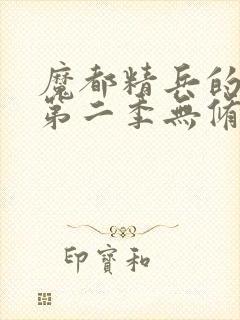 魔都精兵的
第二季無脩
印寶和